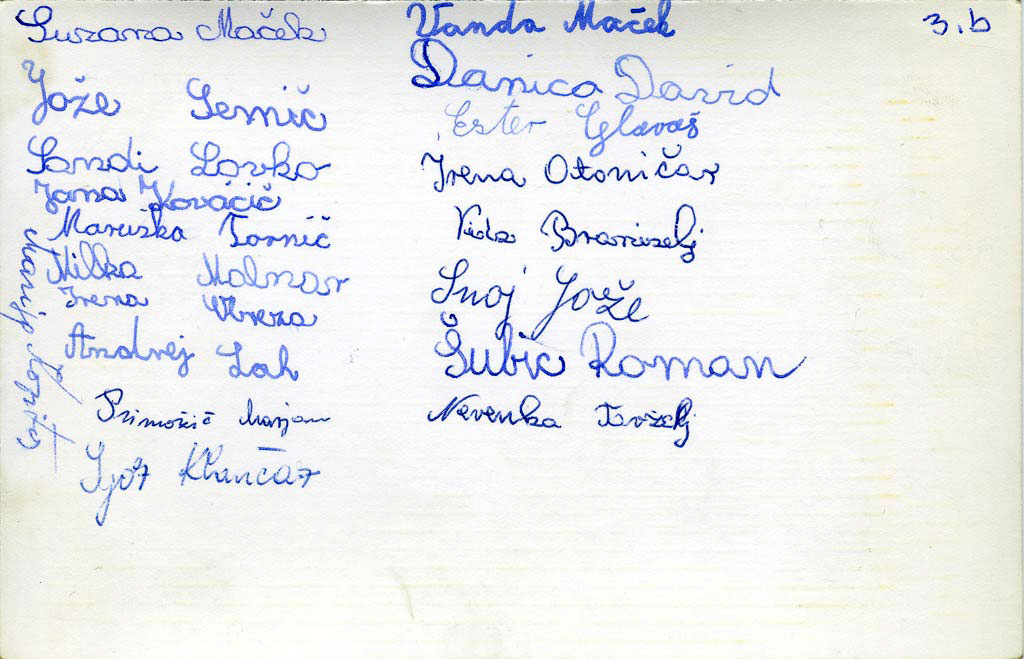 Suzana Maček
Jože Semič
Sandi Lovko
Jana Kovačič
Maruška Tornič
Milka Molnar
Irena Ubreza
Andrej Lah
Primožič Marjan
Igor Klančar
Marija
Vanda Maček
Danica David
Ester Glavaš
Irena Otoničar
Vida Braniselj
Snoj Jože
Šubic Roman
Nevenka Tavželj
3.b